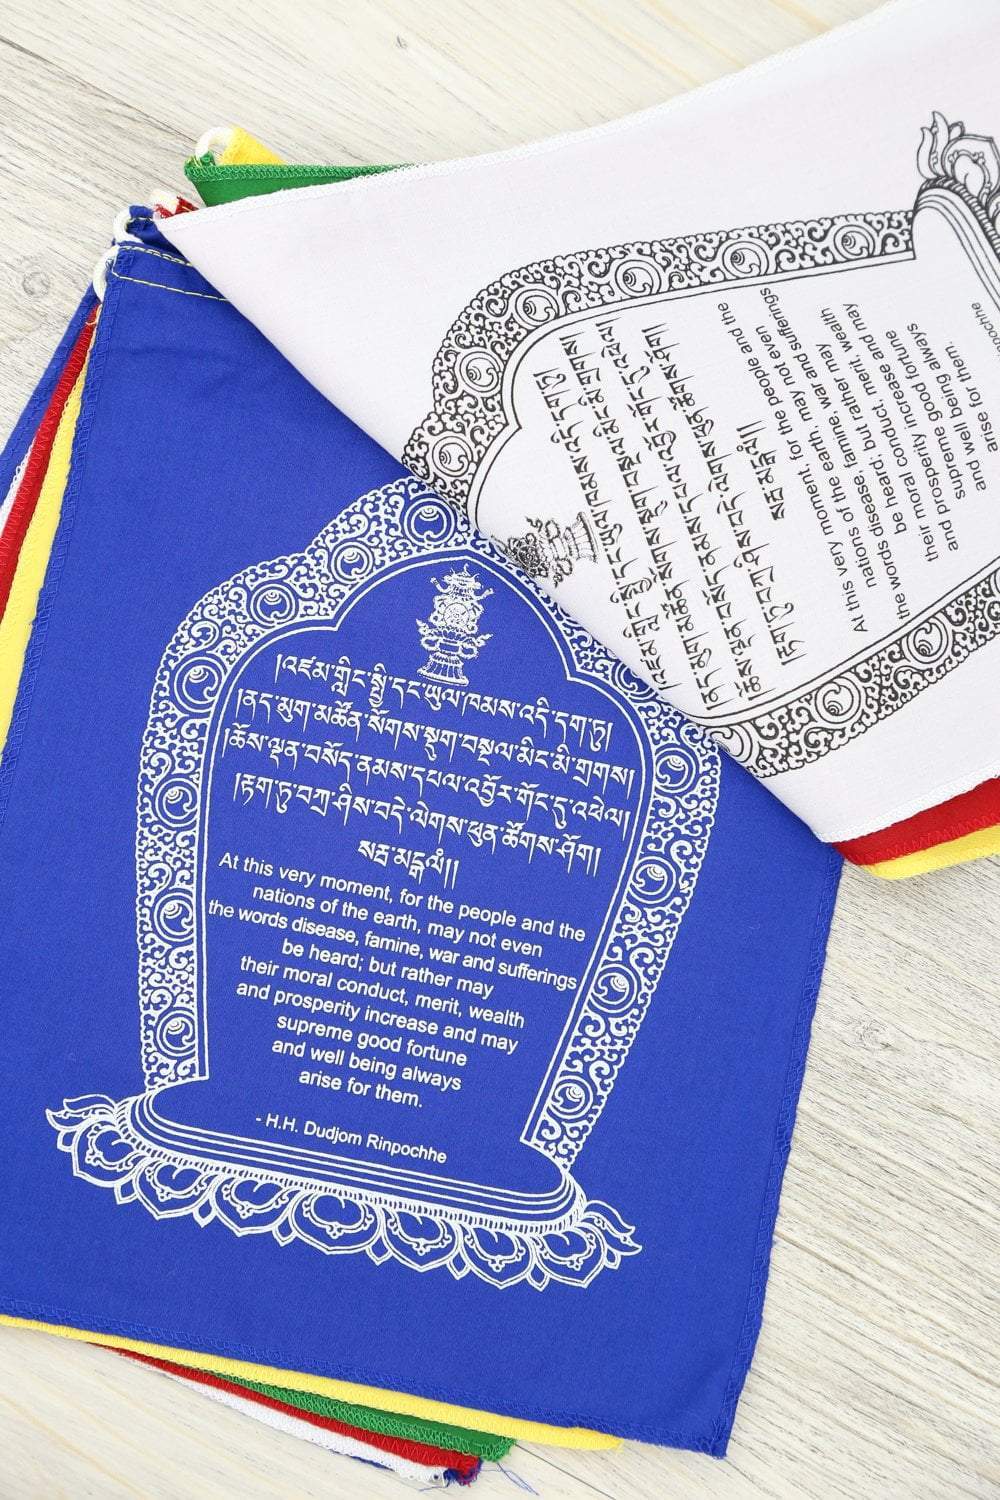 །འཛམ་གླིང་སྤྱི་དང་ཡུལ་ཁམས་འདི་དག་ཏུ།
།ནད་མུག་མཚོན་སོགས་སྡུག་བསྔལ་མིང་མི་གྲགས།
།ཆོས་ལྡན་བསོད་ནམས་དཔལ་འབྱོར་གོང་དུ་འཕེལ།
།རྟག་ཏུ་བཀྲ་ཤིས་བདེ་ལེགས་ཕུན་ཚོགས་ཤོག།
སརྦ་མངྒ་ལཾ།།
At this very moment, for the people and the
nations of the earth, may not even
the words disease, famine, war and sufferings
be heard; but rather may
their moral conduct, merit, wealth
and prosperity increase and may
supreme good fortune
and well being always
arise for them.
- H.H. Dudjom Rinpochhe
།འཛམ་གླིང་སྤྱི་དང་ཡུལ་ཁམས་འདི་དག་ཏུ།
།ནད་མུག་མཚོན་སོགས་སྡུག་བསྔལ་མིང་མི་གྲགས།
ཆོས་ལྡན་བསོད་ནམས་དཔལ་འབྱོར་གོང་དུ་འཕེལ།
།རྟག་ཏུ་བཀྲ་ཤིས་བདེ་ལེགས་ཕུན་ཚོགས་ཤོག།
སརྦ་མངྒ་ལཾ།།
At this very moment, for the people and the
nations of the earth, may not even
the words disease, famine, war and sufferings
be heard; but rather may
their moral conduct, merit, wealth
and prosperity increase and may
supreme good fortune
and well being always
arise for them.